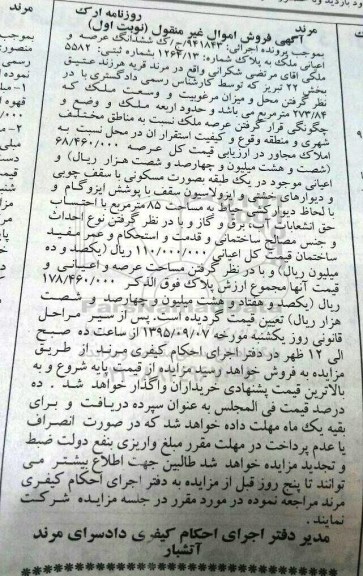 روزنامه ارک
مرند
آگهی فروش اموال غیر منقول (نوبت اول)
بموجب پرونده اجرائی: ۹۴۱۸۴۳/ج/ک ششدانگ عرصه و
اعیانی ملک به پلاک شماره: ۱۲۶۴/۱۳ شماره ثبتی: ۵۵۸۲
ملکی آقای مرتضی شکرانی واقع در مرند قریه هرزند عتیق
بخش ۲۲ تبریز که توسط کارشناس رسمی دادگستری با در
نظر گرفتن محل و میزان مرغوبیت و وسعت ملک که
۲۷۳/۸۴ مترمربع می باشد و حدود اربعه ملک و وضع و
چگونگی قرار گرفتن عرصه ملک نسبت به مناطق مختلف
شهری و منطقه وقوع و کیفیت استقرار آن در محل نسبت به
املاک مجاور در ارزیابی قیمت کل عرصه ۶۸/۴۶۰/۰۰۰
(شصت و هشت میلیون و چهارصد و شصت هزار ریال) و
اعیانی موجود در یک طبقه بصورت مسکونی با سقف چوبی
و دیوارهای خشتی و ایزولاسیون سقف با پوشش ایزوگام و
با لحاظ دیوارکشی با مساحت ۸۵ مترمربع با احتساب
حق انشعابات آب، برق و گاز و با در نظر گرفتن نوع احداث
و جنس مصالح ساختمانی و قدمت و استحکام و عمر مفید
ساختمان قیمت کل اعیانی ۱۱۰/۰۰۰/۰۰۰ ریال (یکصد و ده
میلیون ریال) و با در نظر گرفتن مساحت عرصه و اعیانی و
قیمت آنها مجموع ارزش پلاک فوق الذکر ۱۷۸/۴۶۰/۰۰۰
ریال (یکصد و هفتاد و هشت میلیون و چهارصد و شصت
هزار ریال) تعیین قیمت گردیده است، پس از سیر مراحل
قانونی روز یکشنبه مورخه ۱۳۹۵/۰۹/۰۷ از ساعت ده صبح
الی ۱۲ ظهر در دفتر اجرای احکام کیفری مرند از طریق
مزایده به فروش خواهد رسید مزایده از قیمت پایه شروع و به
بالاترین قیمت پیشنهادی خریداران واگذار خواهد شد. ده
درصد قیمت فی المجلس به عنوان سپرده دریافت و برای
بقیه یک ماه مهلت داده خواهد شد که در صورت انصراف
یا عدم پرداخت در مهلت مقرر مبلغ واریزی بنفع دولت ضبط
و تجدید مزایده خواهد شد طالبین جهت اطلاع بیشتر می
توانند تا پنج روز قبل از مزایده به دفتر اجرای احکام کیفری
مرند مراجعه نموده در مورد مقرر در جلسه مزایده شرکت
نمایند.
مدیر دفتر اجرای احکام کیفری دادسرای مرند
آتشبار